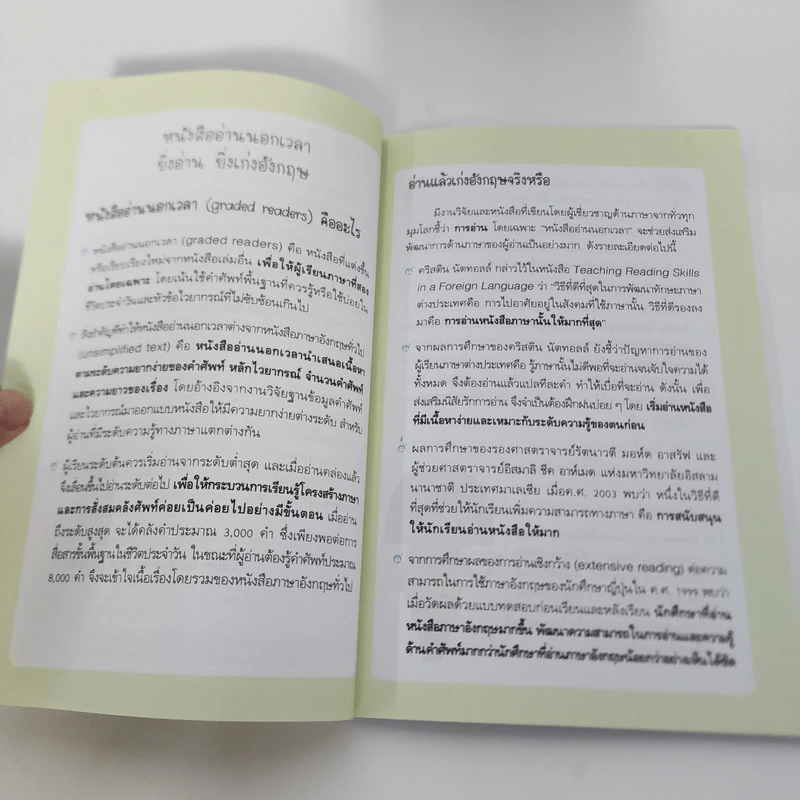 หนังสืออ่านนอกเวลา
ยิ่งอ่าน ยิ่งเก่งอังกฤษ
หนังสืออ่านนอกเวลา (graded readers) คืออะไร
หนังสืออ่านนอกเวลา (graded readers) คือ หนังสือที่แต่งขึ้น
หรือเรียบเรียงใหม่จากหนังสือเล่มอื่น เพื่อให้ผู้เรียนภาษาที่สอง
อ่านโดยเฉพาะ โดยเน้นใช้คำศัพท์พื้นฐานที่ควรรู้หรือใช้บ่อยใน
ชีวิตประจำวันและหัวข้อไวยากรณ์ที่ไม่ซับซ้อนเกินไป
สิ่งสำคัญที่ทำให้หนังสืออ่านนอกเวลาต่างจากหนังสือภาษาอังกฤษทั่วไป
(unsimplified text) คือ หนังสืออ่านนอกเวลานำเสนอเนื้อหา
ตามระดับความยากง่ายของคำศัพท์ หลักไวยากรณ์ จำนวนคำศัพท์
และความยาวของเรื่อง โดยอ้างอิงจากงานวิจัยฐานข้อมูลคำศัพท์
และไวยากรณ์มาออกแบบหนังสือให้มีความยากง่ายต่างระดับ สำหรับ
ผู้อ่านที่มีระดับความรู้ทางภาษาแตกต่างกัน
ผู้เรียนระดับต้นควรเริ่มอ่านจากระดับต่ำสุด และเมื่ออ่านคล่องแล้ว
จึงเลื่อนขึ้นไปอ่านระดับต่อไป เพื่อให้กระบวนการเรียนรู้โครงสร้างภาษา
และการสั่งสมคลังศัพท์ค่อยเป็นค่อยไปอย่างมีขั้นตอน เมื่ออ่าน
ถึงระดับสูงสุด จะได้คลังคำประมาณ 3,000 คำ ซึ่งเพียงพอต่อการ
สื่อสารขั้นพื้นฐานในชีวิตประจำวัน ในขณะที่ผู้อ่านต้องรู้คำศัพท์ประมาณ
8,000 คำ จึงจะเข้าใจเนื้อเรื่องโดยรวมของหนังสือภาษาอังกฤษทั่วไป
อ่านแล้วเก่งอังกฤษจริงหรือ
มีงานวิจัยและหนังสือที่เขียนโดยผู้เชี่ยวชาญด้านภาษาจากทั่วทุก
มุมโลกชี้ว่า การอ่าน โดยเฉพาะ "หนังสืออ่านนอกเวลา" จะช่วยส่งเสริม
พัฒนาการด้านภาษาของผู้อ่านเป็นอย่างมาก ดังรายละเอียดต่อไปนี้
คริสติน นัตทอลล์ กล่าวไว้ในหนังสือ Teaching Reading Skills
in a Foreign Language ว่า "วิธีที่ดีที่สุดในการพัฒนาทักษะภาษา
ต่างประเทศคือ การไปอาศัยอยู่ในสังคมที่ใช้ภาษานั้น วิธีที่ดีรองลง
มาคือ การอ่านหนังสือภาษานั้นให้มากที่สุด"
จากผลการศึกษาของคริสติน นัตทอลล์ ยังชี้ว่าปัญหาการอ่านของ
ผู้เรียนภาษาต่างประเทศคือ รู้ภาษานั้นไม่ดีพอที่จะอ่านจนจับใจความได้
ทั้งหมด จึงต้องอ่านแล้วแปลทีละคำ ทำให้เบื่อที่จะอ่าน ดังนั้น เพื่อ
ส่งเสริมนิสัยรักการอ่าน จึงจำเป็นต้องฝึกฝนบ่อย ๆ โดย เริ่มอ่านหนังสือ
ที่มีเนื้อหาง่ายและเหมาะกับระดับความรู้ของตนก่อน
ผลการศึกษาของรองศาสตราจารย์รัตนาวตี มอห์ด อาสรัฟ และ
ผู้ช่วยศาสตราจารย์อิสมาลิ ชีค อาห์เมด แห่งมหาวิทยาลัยอิสลาม
นานาชาติ ประเทศมาเลเซีย เมื่อค.ศ. 2003 พบว่า หนึ่งในวิธีที่ดี
ที่สุดที่ช่วยให้นักเรียนเพิ่มความสามารถทางภาษา คือ การสนับสนุน
ให้นักเรียนอ่านหนังสือให้มาก
จากการศึกษาผลของการอ่านเชิงกว้าง (extensive reading) ต่อความ
สามารถในการใช้ภาษาอังกฤษของนักศึกษาญี่ปุ่นใน ค.ศ. 1999 พบว่า
เมื่อวัดผลด้วยแบบทดสอบก่อนเรียนและหลังเรียน นักศึกษาที่อ่าน
หนังสือภาษาอังกฤษมากขึ้น พัฒนาความสามารถในการอ่านและความรู้
ด้านคำศัพท์มากกว่านักศึกษาที่อ่านภาษาอังกฤษน้อยกว่าอย่างเห็นได้ชัด